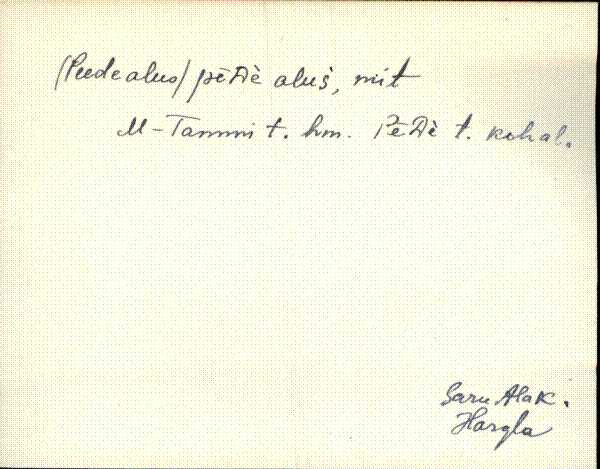 (Peedealus) pēDè aluš, mit
M-Tammi t. hm. PēDè t. kohal.
Saru Alak.
Hargla